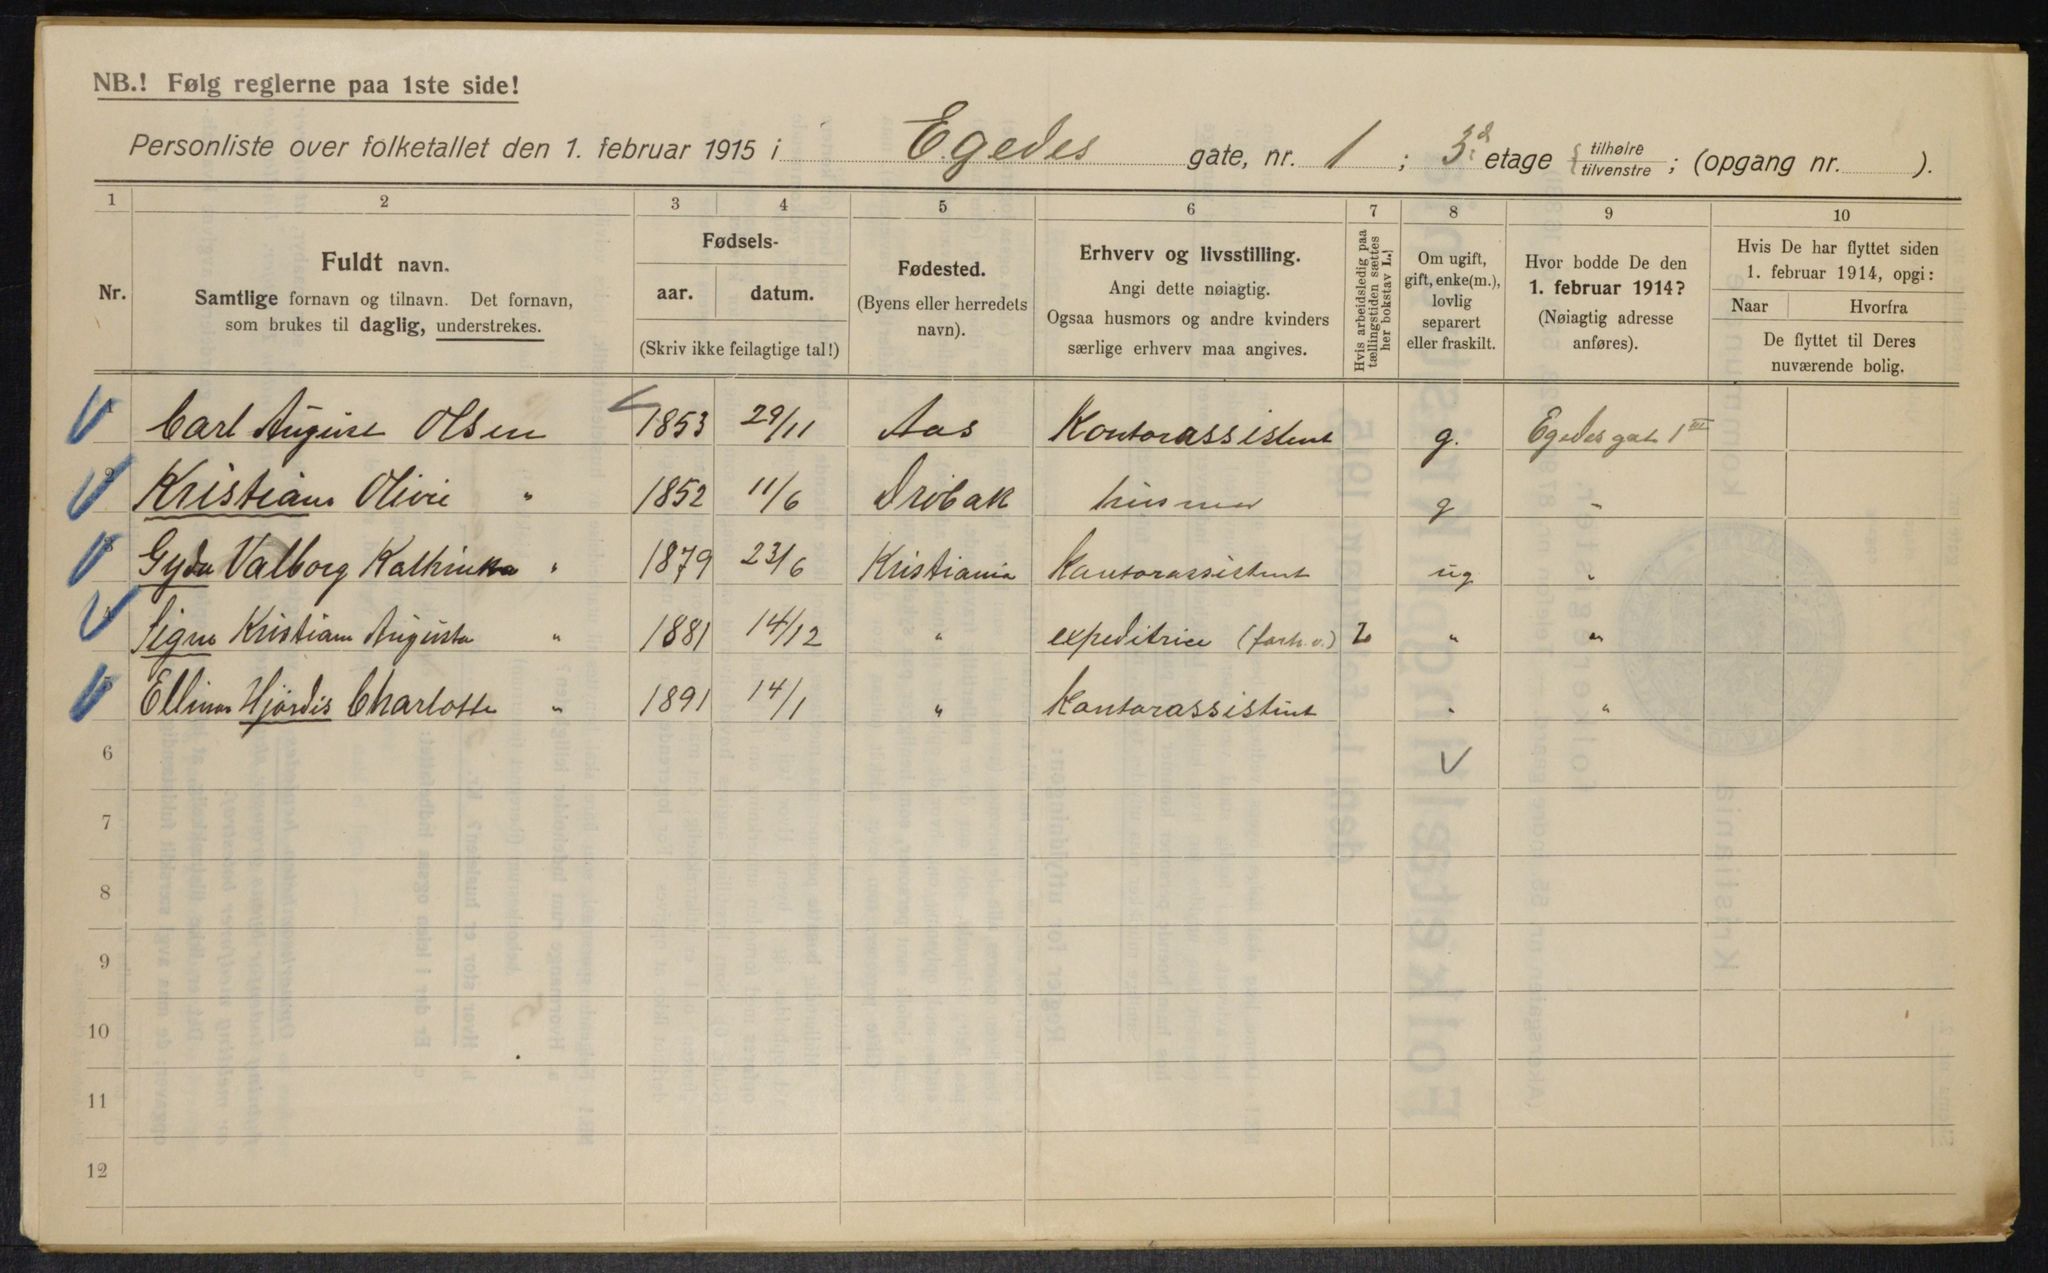 NB.! Følg reglerne paa 1ste side!
Personliste over folketallet den 1. februar 1915 i Egedes gate, nr. 1 ; 3d etage { tilhøire / tilvenstre ; (opgang nr. ).
1 2 3 4 5 6 7 8 9 10
Nr.
Fuldt navn.
Samtlige fornavn og tilnavn. Det fornavn,
som brukes til daglig, understrekes.
Fødsels-
aar. datum.
(Skriv ikke feilagtige tal!)
Fødested.
(Byens eller herredets
navn).
Erhverv og livsstilling.
Angi dette nøiagtig.
Ogsaa husmors og andre kvinders
særlige erhverv maa angives.
Hvis arbeidsledig paa
tællingstiden sættes
her bokstav L.
Om ugift,
gift, enke(m.),
lovlig
separert
eller fraskilt.
Hvor bodde De den
1. februar 1914?
(Nøiagtig adresse
anføres).
Hvis De har flyttet siden
1. februar 1914, opgi:
Naar Hvorfra
De flyttet til Deres
nuværende bolig.
1 Carl August Olsen 1853 29/11 Aas Kontorassistent g. Egedes gate 1 III
2 Kristiane Olivie " 1852 11/6 Drøbak husmor g "
3 Gyda Valborg Kathinka " 1879 23/6 Kristiania Kontorassistent ug "
4 Signe Kristiane Augusta " 1881 14/12 " expeditrice (forh.v.) L " "
5 Ellinor Hjördis Charlotte " 1891 14/1 " Kontorassistent " "
6
7
8
9
10
11
12